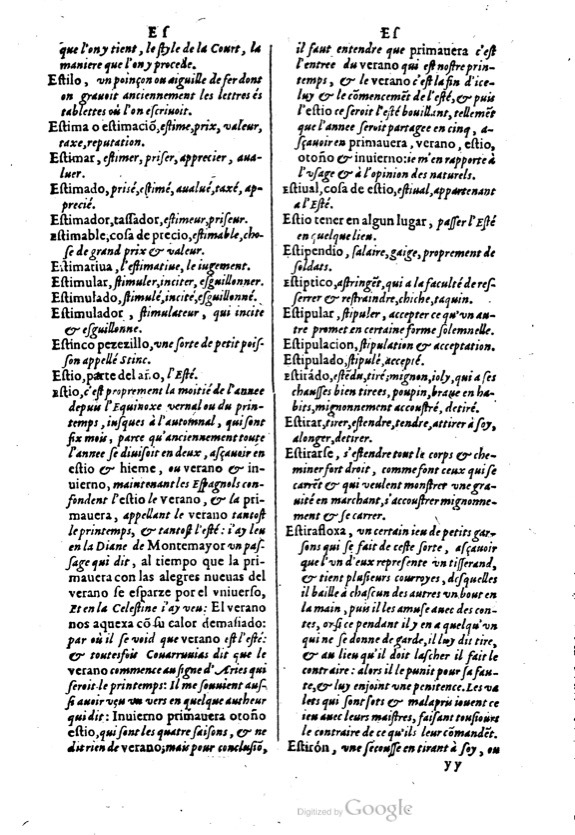 Es
que l'on y tient, le style de la Court, la
maniere que l'on y procede.
Estilo, vn poinçon ou aiguille de fer dont
on grauoit anciennement les lettres és
tablettes où l'on escriuoit.
Estima o estimació, estime, prix, valeur,
taxe, reputation.
Estimar, estimer, priser, apprecier, aua-
luer.
Estimado, prisé, estimé, aualué, taxé, ap-
precié.
Estimador, tassador, estimeur, priseur.
Estimable, cosa de precio, estimable, cho-
se de grand prix & valeur.
Estimatiua, l'estimatiue, le iugement.
Estimular, stimuler, inciter, esguillonner.
Estimulado, stimulé, incité, esguillonné.
Estimulador, stimulateur, qui incite
& esguillonne.
Estinco pezezillo, vne sorte de petit pois-
son appellé Stinc.
Estio, parte del año, l'Esté.
Estio, c'est proprement la moitié de l'annee
depuis l'Equinoxe vernal ou du prin-
temps, iusques à l'automnal, qui sont
six mois, parce qu'anciennement toute
l'annee se diuisoit en deux, asçauoir en
estio & hieme, ou verano & in-
uierno, maintenant les Espagnols con-
fondent l'estio le verano, & la pri-
mauera, appellant le verano tantost
le printemps, & tantost l'esté: i'ay leu
en la Diane de Montemayor vn pas-
sage qui dit, al tiempo que la pri-
mauera con las alegres nueuas del
verano se esparze por el vniuerso,
Et en la Celestine i'ay veu: El verano
nos aquexa cõ su calor demasiado:
par où il se void que verano est l'esté:
& toutesfois Couarruuias dit que le
verano commence au signe d'Aries qui
seroit le printemps: Il me souuient aus-
si auoir veu vn vers en quelque autheur
qui dit: Inuierno primauera otoño
estio, qui sont les quatre saisons, & ne
dit rien de verano; mais pour conclusiõ,
Es
il faut entendre que primauera c'est
l'entree du verano qui est nostre prin-
temps, & le verano c'est la fin d'ice-
luy & le cõmencemẽt de l'esté, & puis
l'estio ce seroit l'esté bouillant, tellemẽt
que l'annee seroit partagee en cinq, a-
sçauoir en primauera, verano, estio,
otoño & inuierno: ie m'en rapporte à
l'vsage & à l'opinion des naturels.
Estiual, cosa de estio, estiual, appartenant
a l'Esté.
Estio tener en algun lugar, passer l'Esté
en quelque lieu.
Estipendio, salaire, gaige, proprement de
soldats.
Estiptico, astringẽt, qui a la faculté de res-
serrer & restraindre, chiche, taquin.
Estipular, stipuler, accepter ce qu'vn au-
tre promet en certaine forme solemnelle.
Estipulacion, stipulation & acceptation.
Estipulado, stipulé, accepté.
Estirádo, estẽdu, tiré; mignon, ioly, qui a ses
chausses bien tirees, poupin, braue en ha-
bits, mignonnement accoustré, detiré.
Estirar, tirer, estendre, tendre, attirer à soy,
alonger, detirer.
Estirarse, s'estendre tout le corps & che-
miner fort droit, comme font ceux qui se
carrẽt & qui veulent monstrer vne gra-
uité en marchant, s'accoustrer mignonne-
ment & se carrer.
Estirafloxa, vn certain ieu de petits gar-
sons qui se fait de ceste sorte, asçauoir
que l'vn d'eux represente vn tisserand,
& tient plusieurs courroyes, desquelles
il baille à chascun des autres vn bout en
la main, puis il les amuse auec des con-
tes, or si ce pendant il y en a quelqu'vn
qui ne se donne de garde, il luy dit tire,
& au lieu qu'il doit lascher il fait le
contraire: alors il le punit pour sa fau-
te, & luy enjoint vne penitence. Les va
lets qui sont sots & malapris iouent ce
ieu auec leurs maistres, faisant tousiours
le contraire de ce qu'ils leur cõmandẽt.
Estirón, vne secousse en tirant à soy, ou
yy
Digitized by Google